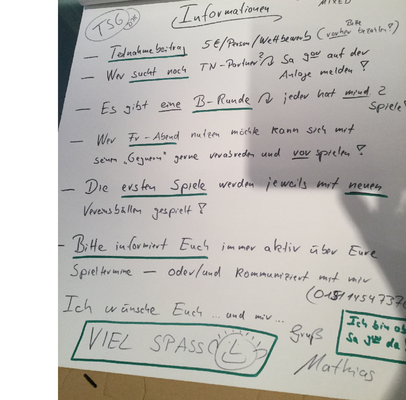 TSG
Informationen
MIXED
— Teilnahmebeitrag 5€/Person/Wettbewerb (Bitte vorher bezahlen!)
— Wer sucht noch TN-Partner? Sa 9⁰⁰ auf der
Anlage melden!
— Es gibt eine B-Runde jeder hat mind 2
Spiele
— Wer Fr-Abend nutzen möchte kann sich mit
seinen "Gegnern" gerne verabreden und vor spielen!
— Die ersten Spiele werden jeweils mit neuen
Vereinsbällen gespielt!
— Bitte informiert Euch immer aktiv über Eure
Spieltermine — oder/und kommuniziert mit mir
Ich wünsche Euch ... und mir ...
VIEL SPASS
Gruß
Mathias
Ich bin
Sa da